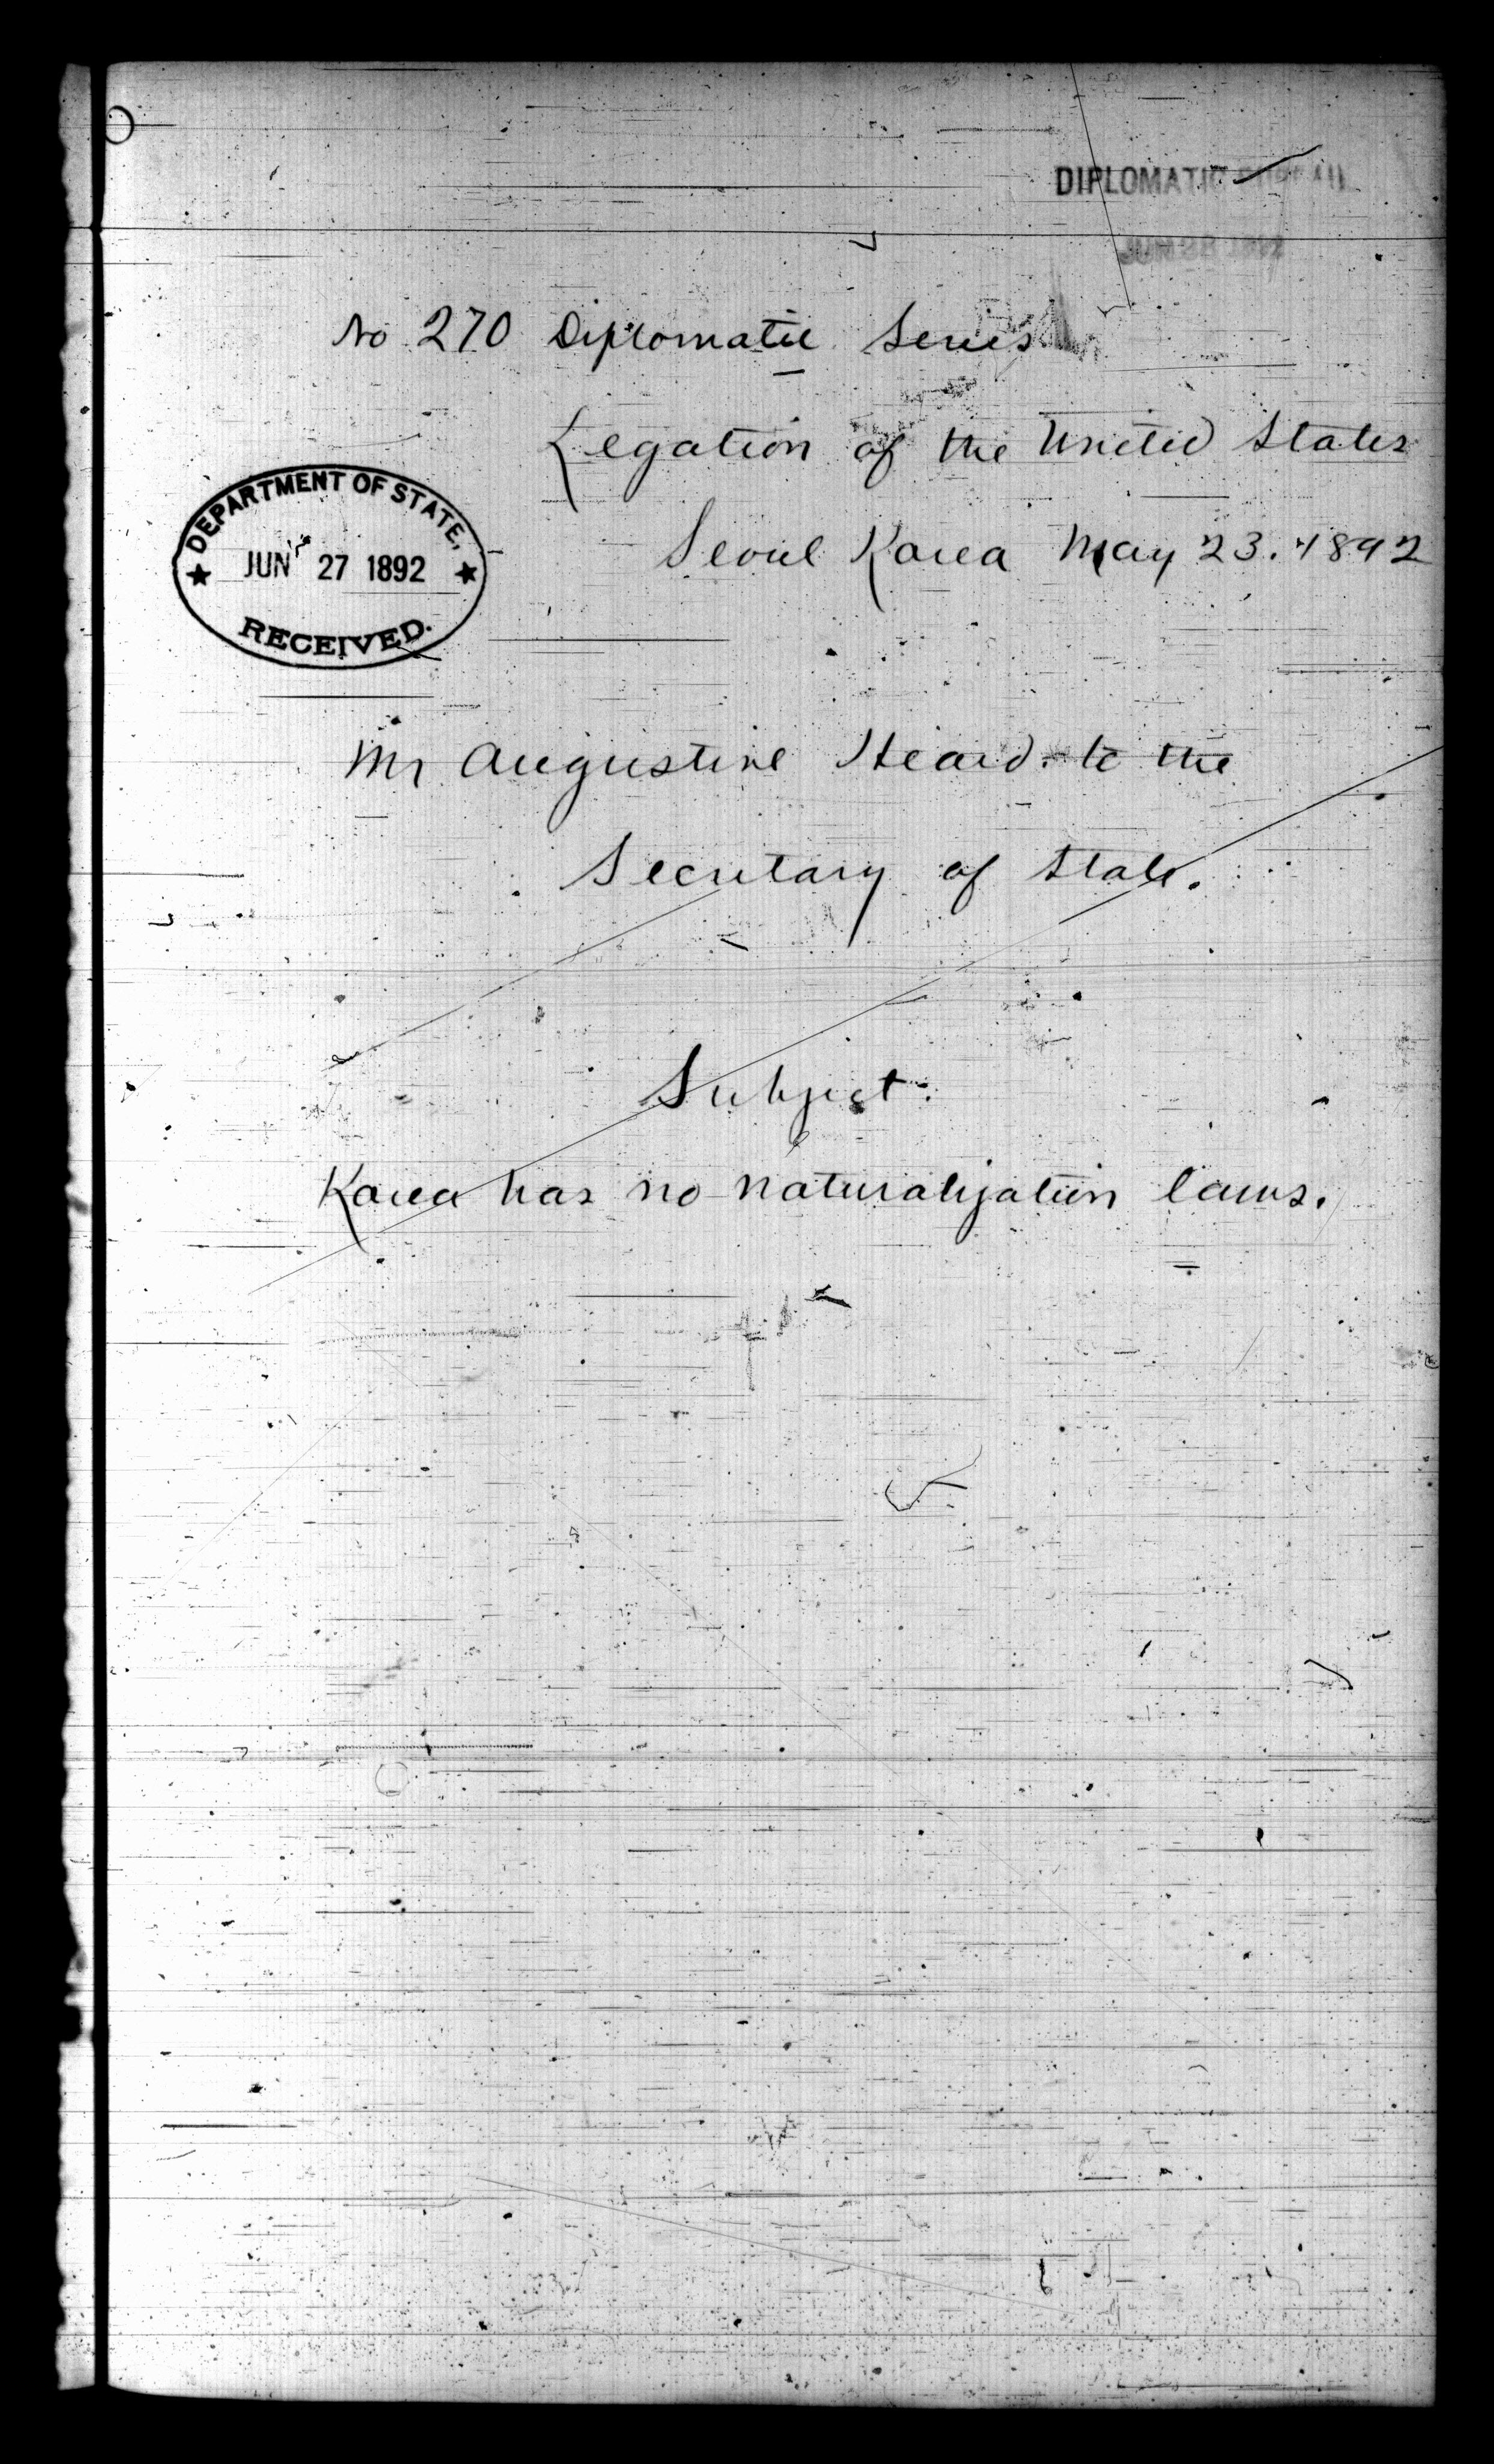 DIPLOMATIC BUREAU
JUN 28 1892
No 270 Diplomatic Series
Legation of the United States
Seoul Korea May 23. 1892
DEPARTMENT OF STATE,
JUN 27 1892
RECEIVED.
Mr Augustine Heard. to the
Secretary of State.
Subject:
Korea has no naturalization laws.